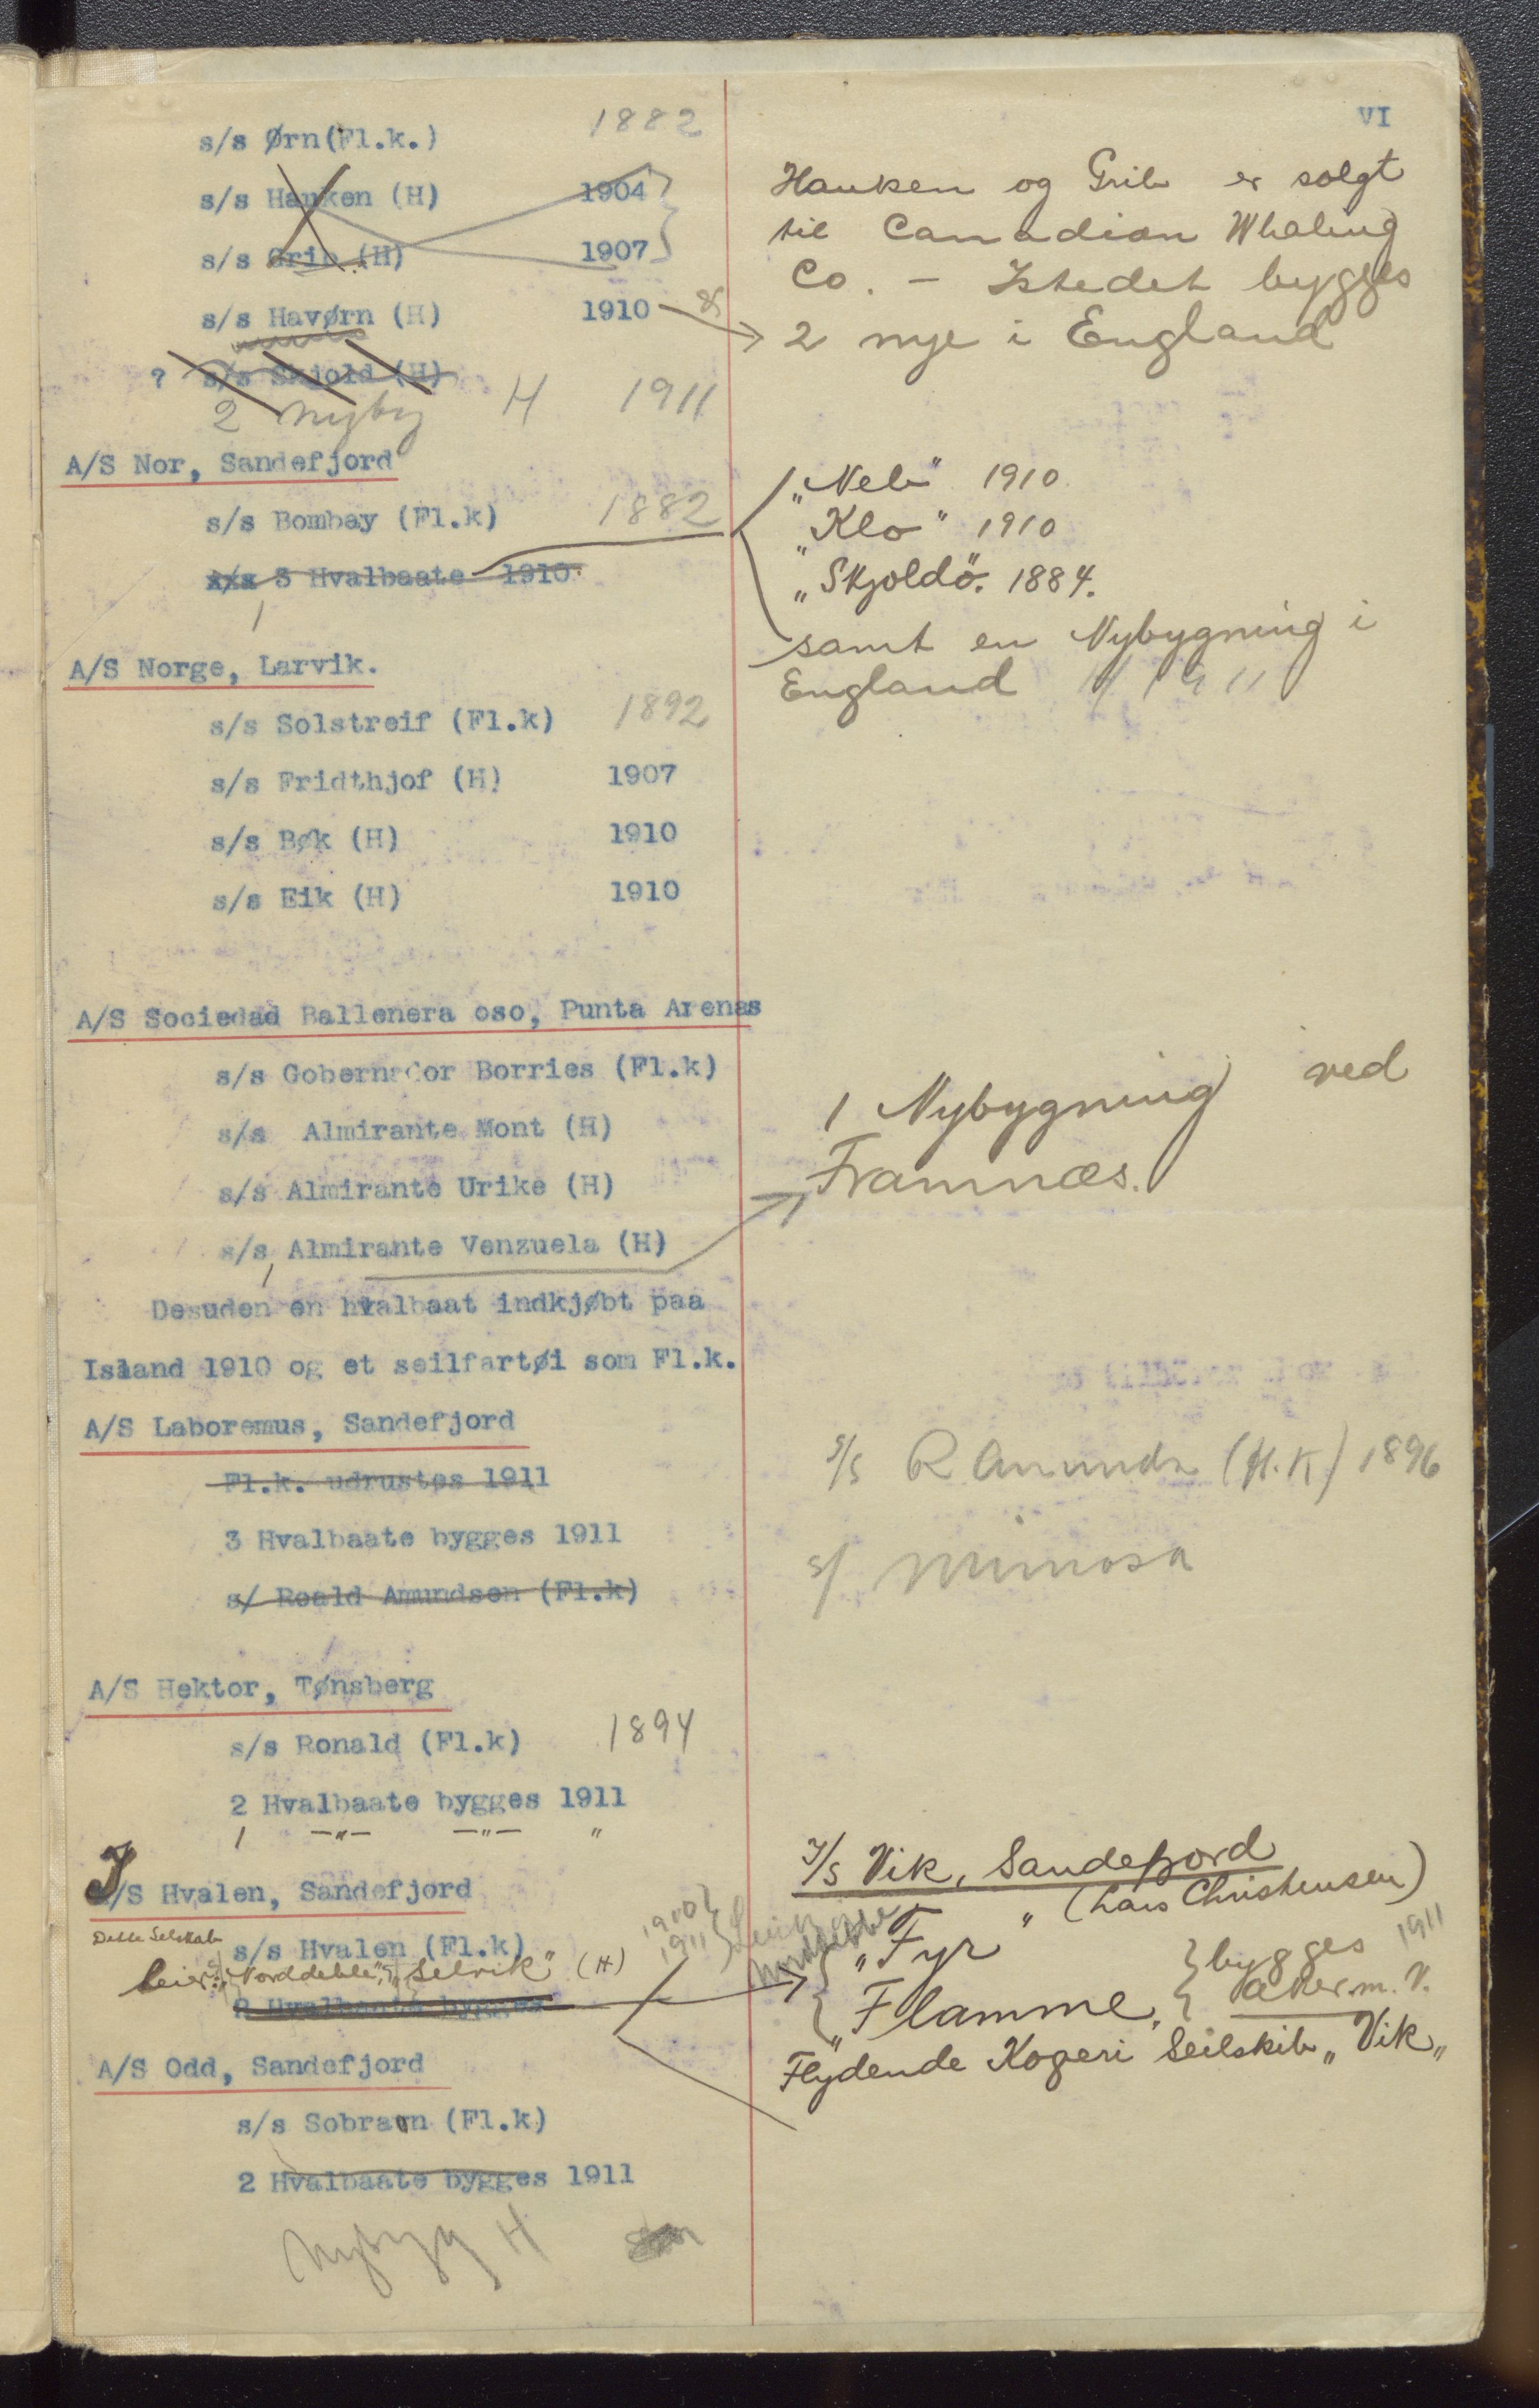 VI
s/s Ørn(Fl.k.) 1882
s/s Hauken (H) 1904
s/s Grib (H) 1907
s/s Havørn (H) 1910
? s/s Skjold (H)
2 Nybyg H 1911
Hauken og Grib er solgt
til Canadian Whaling
Co. - Istedet bygges
2 nye i England
A/S Nor, Sandefjord
s/s Bombay (Fl.k) 1882
x/x 3 Hvalbaate 1910.
"Neb" 1910
"Klo" 1910
"Skjoldö". 1884.
samt en Nybygning i
England H 1911
A/S Norge, Larvik.
s/s Solstreif (Fl.k) 1892
s/s Fridthjof (H) 1907
s/s Bøk (H) 1910
s/s Eik (H) 1910
A/S Sociedad Ballenera oso, Punta Arenas
s/s Gobernador Borries (Fl.k)
s/s Almirante Mont (H)
s/s Almirante Urike (H)
s/s Almirante Venzuela (H)
1 Nybygning ved
Framnæs.
Desuden en hvalbaat indkjøbt paa
Island 1910 og et seilfartøi som Fl.k.
A/S Laboremus, Sandefjord
Fl.k. udrustes 1911
3 Hvalbaate bygges 1911
s/ Roald Amundsen (Fl.k)
s/s R Amunds (H.K) 1896
s/ Mimosa
A/S Hektor, Tønsberg
s/s Ronald (Fl.k) 1894
2 Hvalbaate bygges 1911
1 -"- -"- "
I/S Hvalen, Sandefjord
s/s Hvalen (Fl.k)
Dette Selskab
leier: "Norddeble", "Selvik" (H)
1910
1911
2 Hvalbaate bygges
I/S Vik, Sandefjord
" (Lars Christensen)
"Fyr
"Flamme,
bygges 1911
aker. m. V.
Flydende Kogeri Seilskib "Vik"
A/S Odd, Sandefjord
s/s Sobraon (Fl.k)
2 Hvalbaate bygges 1911
Nybyg H